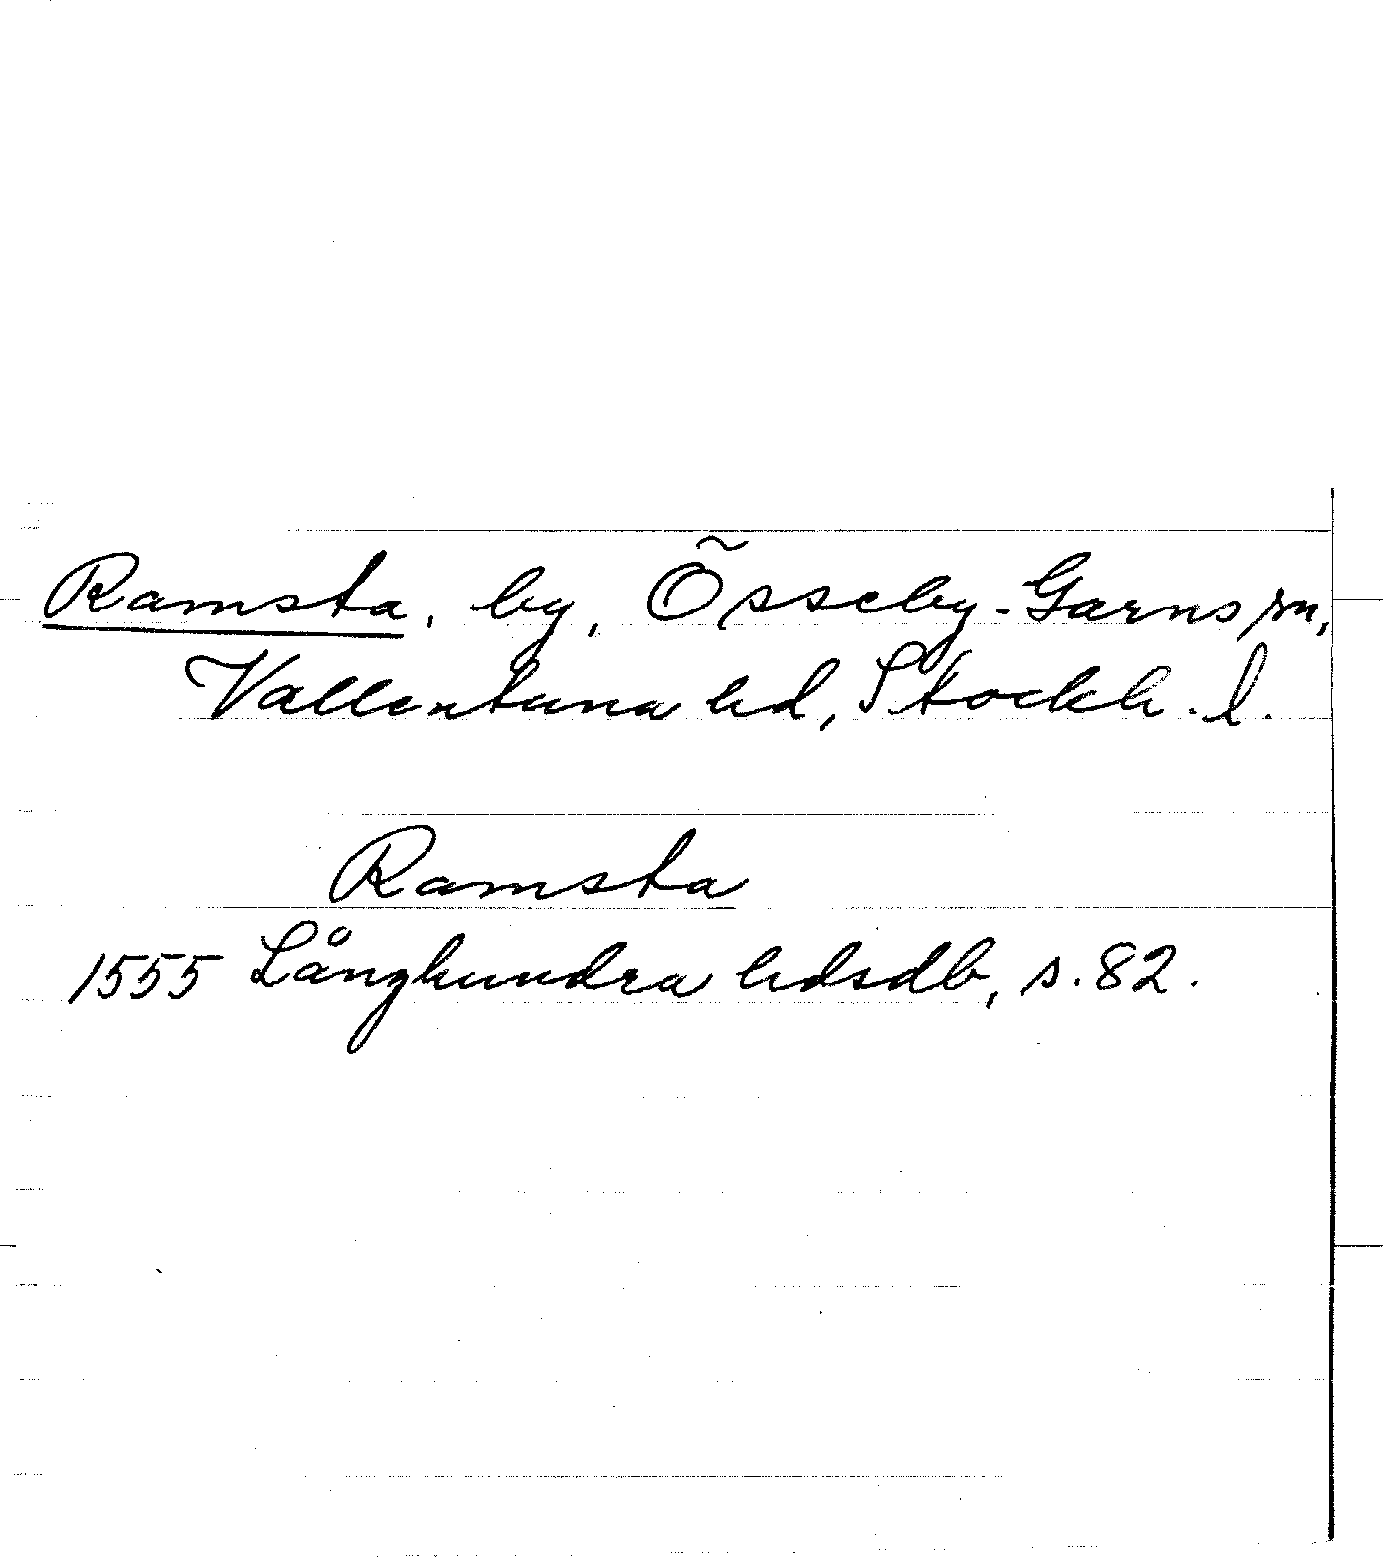 Ramsta, by, Össeby-Garns sn,
Vallentuna hd, Stockh. l.
Ramsta
1555 Långhundra hdsdb, s. 82.